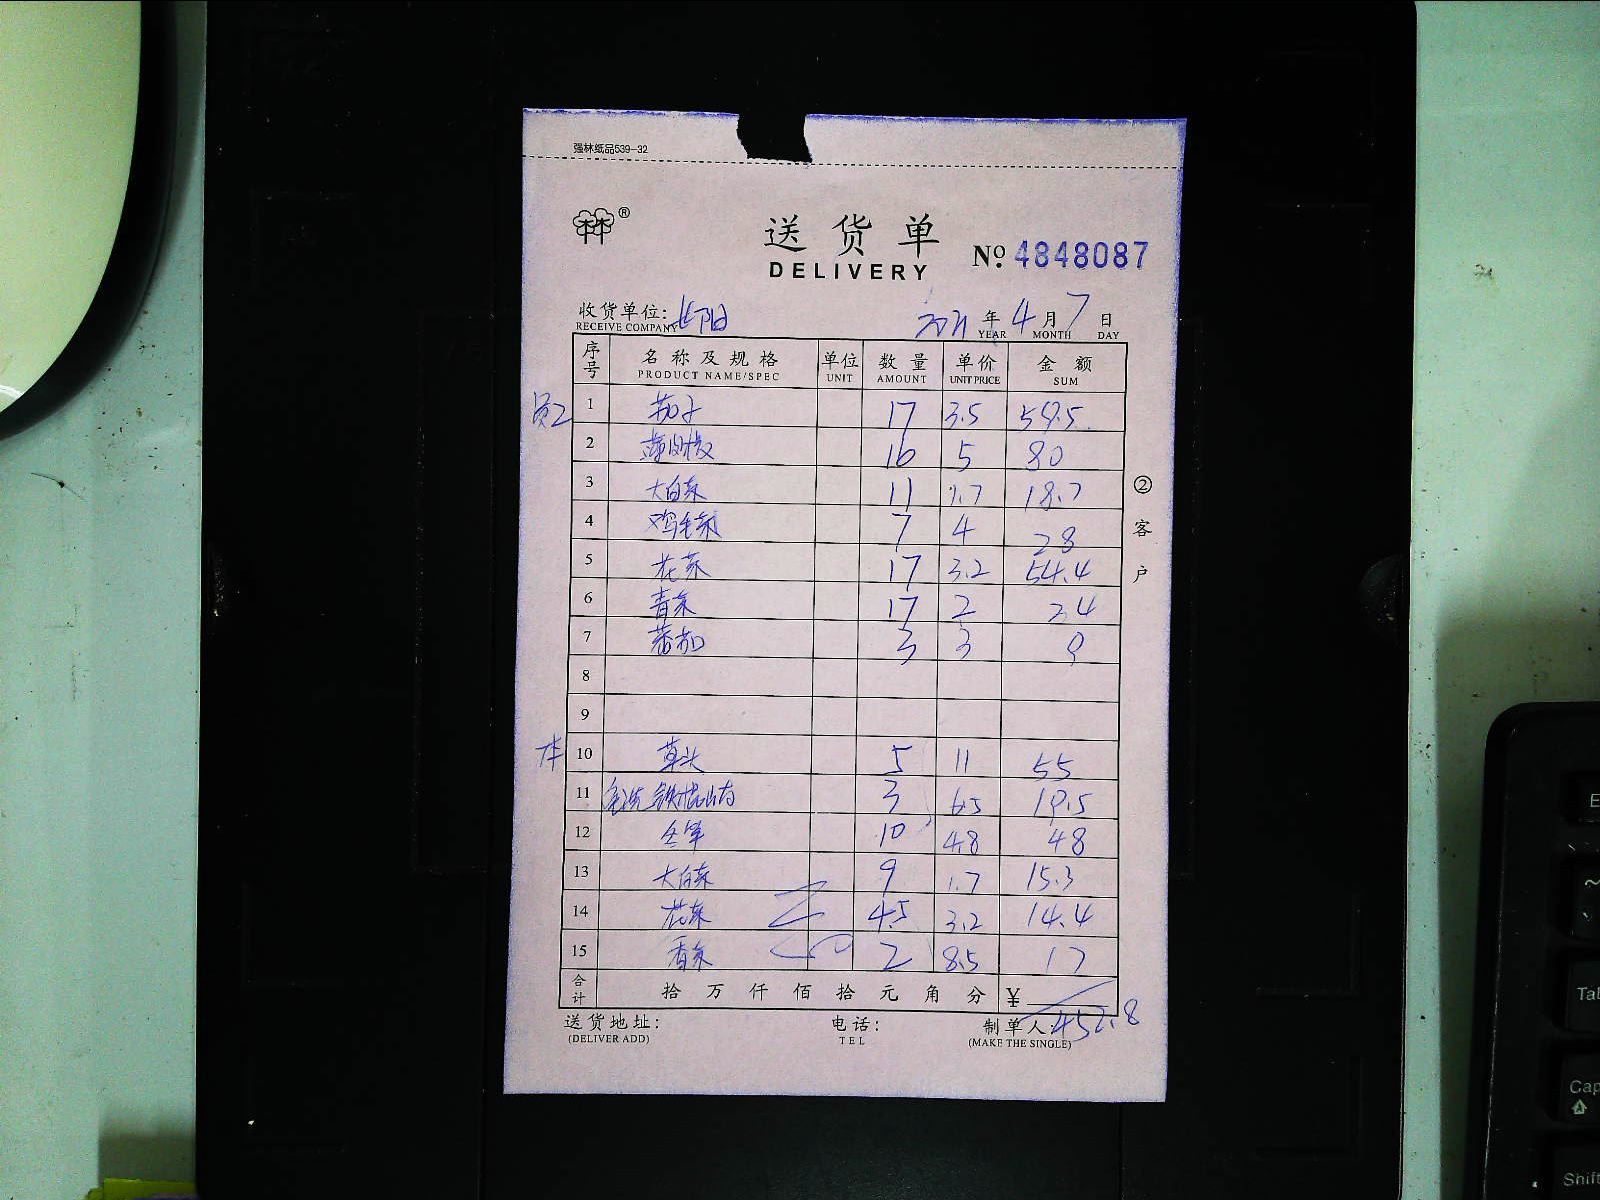 强林纸品539-32
林®
送货单
DELIVERY
№ 4848087
收货单位: 长阳 2021 年 4 月 7 日
RECEIVE COMPANY YEAR MONTH DAY
序号 名称及规格 单位 数量 单价 金额
PRODUCT NAME/SPEC UNIT AMOUNT UNIT PRICE SUM
员工 1 茄子 17 3.5 59.5
2 16 5 80
3 大白菜 11 1.7 18.7
4 鸡毛菜 7 4 28
5 花菜 17 3.2 54.4
6 青菜 17 2 34
7 番茄 3 3 9
8
9
10 草头 5 11 55
11 铁棍山药 3 6.5 19.5
12 冬笋 10 4.8 48
13 大白菜 9 1.7 15.3
14 花菜 4.5 3.2 14.4
15 香菜 2 8.5 17
合计 拾 万 仟 佰 拾 元 角 分 ¥ 452.8
送货地址: 电话: 制单人:
(DELIVER ADD) TEL (MAKE THE SINGLE)
②客户
E
~
Tab
Cap
Shift